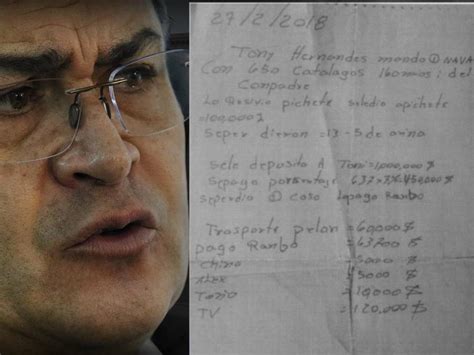 27/2/2018
Tony Hernandes mando @ NAVA
Con 650 Catalagos 160 mas: del
Conpadre
Lo pichete apichete
=100,000$
Seper dieron =13-5 de arina
Sele deposito A Toni=1,000,000$
Sepago porsentaje
seperdio @ coso Lopago Ranbo
Trasporte pelon =60,000$
pago Ranbo =63200 $
chino =5000 $
Alex =5000 $
=10,000 $
TV =120,000$